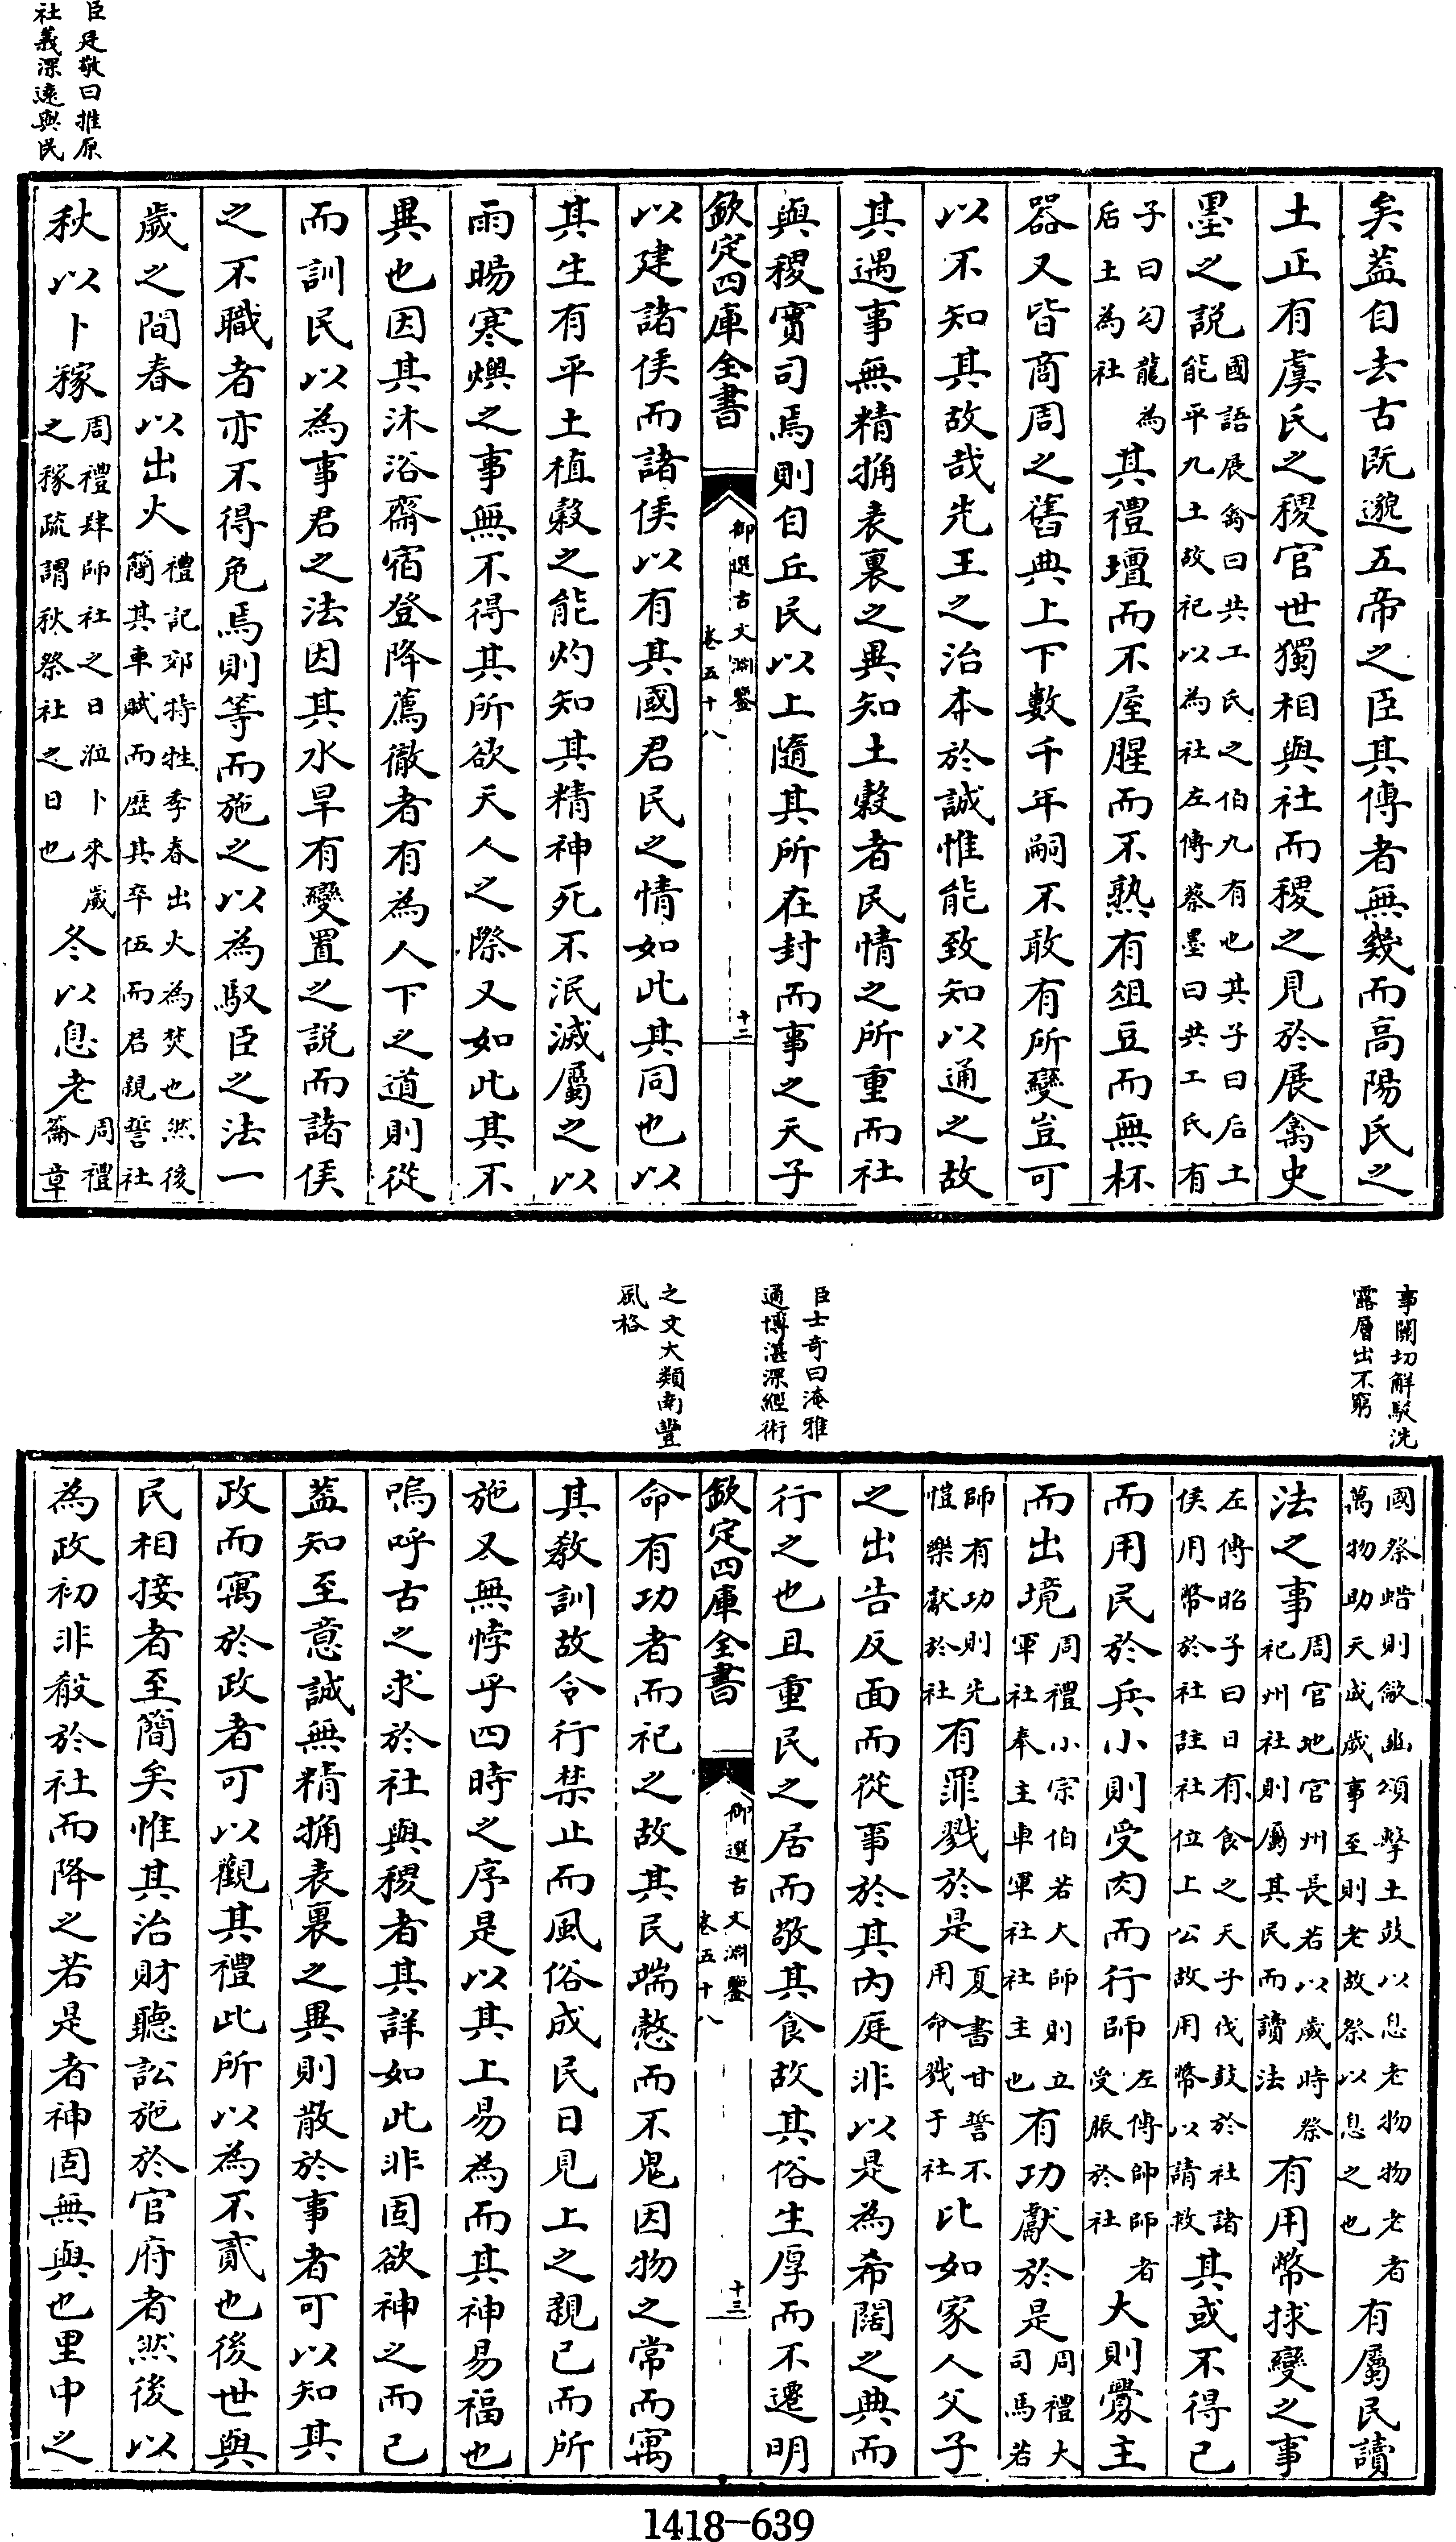 臣廷敬曰推原
社義深遠與民
矣葢自去古既邈五帝之臣其傳者無幾而高陽氏之
土正有虞氏之稷官世獨相與社而稷之見於展禽史
墨之說國語展禽曰共工氏之伯九有也其子曰后土
能平九土故祀以為社左傳蔡墨曰共工氏有
子曰勾龍為
后土為社其禮壇而不屋腥而不熟有俎豆而無杯
器又皆商周之舊典上下數千年嗣不敢有所變豈可
以不知其故哉先王之治本於誠惟能致知以通之故
其遇事無精觕表裏之異知土穀者民情之所重而社
與稷實司焉則自丘民以上隨其所在封而事之天子
欽定四庫全書
御選古文淵鑒
卷五十八
十二
以建諸侯而諸侯以有其國君民之情如此其同也以
其生有平土植穀之能灼知其精神死不泯滅屬之以
雨暘寒燠之事無不得其所欲天人之際又如此其不
異也因其沐浴齋宿登降薦徹者有為人下之道則從
而訓民以為事君之法因其水旱有變置之說而諸侯
之不職者亦不得免焉則等而施之以為馭臣之法一
歲之間春以出火禮記郊特牲季春出火為焚也然後
簡其車賦而歷其卒伍而君親誓社
秋以卜稼周禮肆師社之日涖卜來歲
之稼疏謂秋祭社之日也冬以息老周禮
籥章
事關切解駁洗
露層出不窮
國祭蜡則龡豳頌擊土鼓以息老物物老者
萬物助天成歲事至則老故祭以息之也有屬民讀
法之事周官地官州長若以歲時祭
祀州社則屬其民而讀法有用幣捄變之事
左傳昭子曰日有食之天子伐鼓於社諸
侯用幣於社註社位上公故用幣以請救其或不得已
而用民於兵小則受肉而行師左傳帥師者
受脤於社大則釁主
而出境周禮小宗伯若大師則立
軍社奉主車軍社社主也有功獻於是周禮大
司馬若
師有功則先
愷樂獻於社有罪戮於是夏書甘誓不
用命戮于社比如家人父子
之出告反面而從事於其內庭非以是為希闊之典而
行之也且重民之居而敬其食故其俗生厚而不遷明
臣士奇曰淹雅
通博湛深經術
欽定四庫全書
御選古文淵鑒
卷五十八
十三
之文大類南豐
風格
命有功者而祀之故其民端慤而不鬼因物之常而寓
其教訓故令行禁止而風俗成民日見上之親已而所
施又無悖乎四時之序是以其上易為而其神易福也
嗚呼古之求於社與稷者其詳如此非固欲神之而已
葢知至意誠無精觕表裏之異則散於事者可以知其
政而寓於政者可以觀其禮此所以為不貳也後世與
民相接者至簡矣惟其治財聽訟施於官府者然後以
為政初非殽於社而降之若是者神固無與也里中之
1418-639